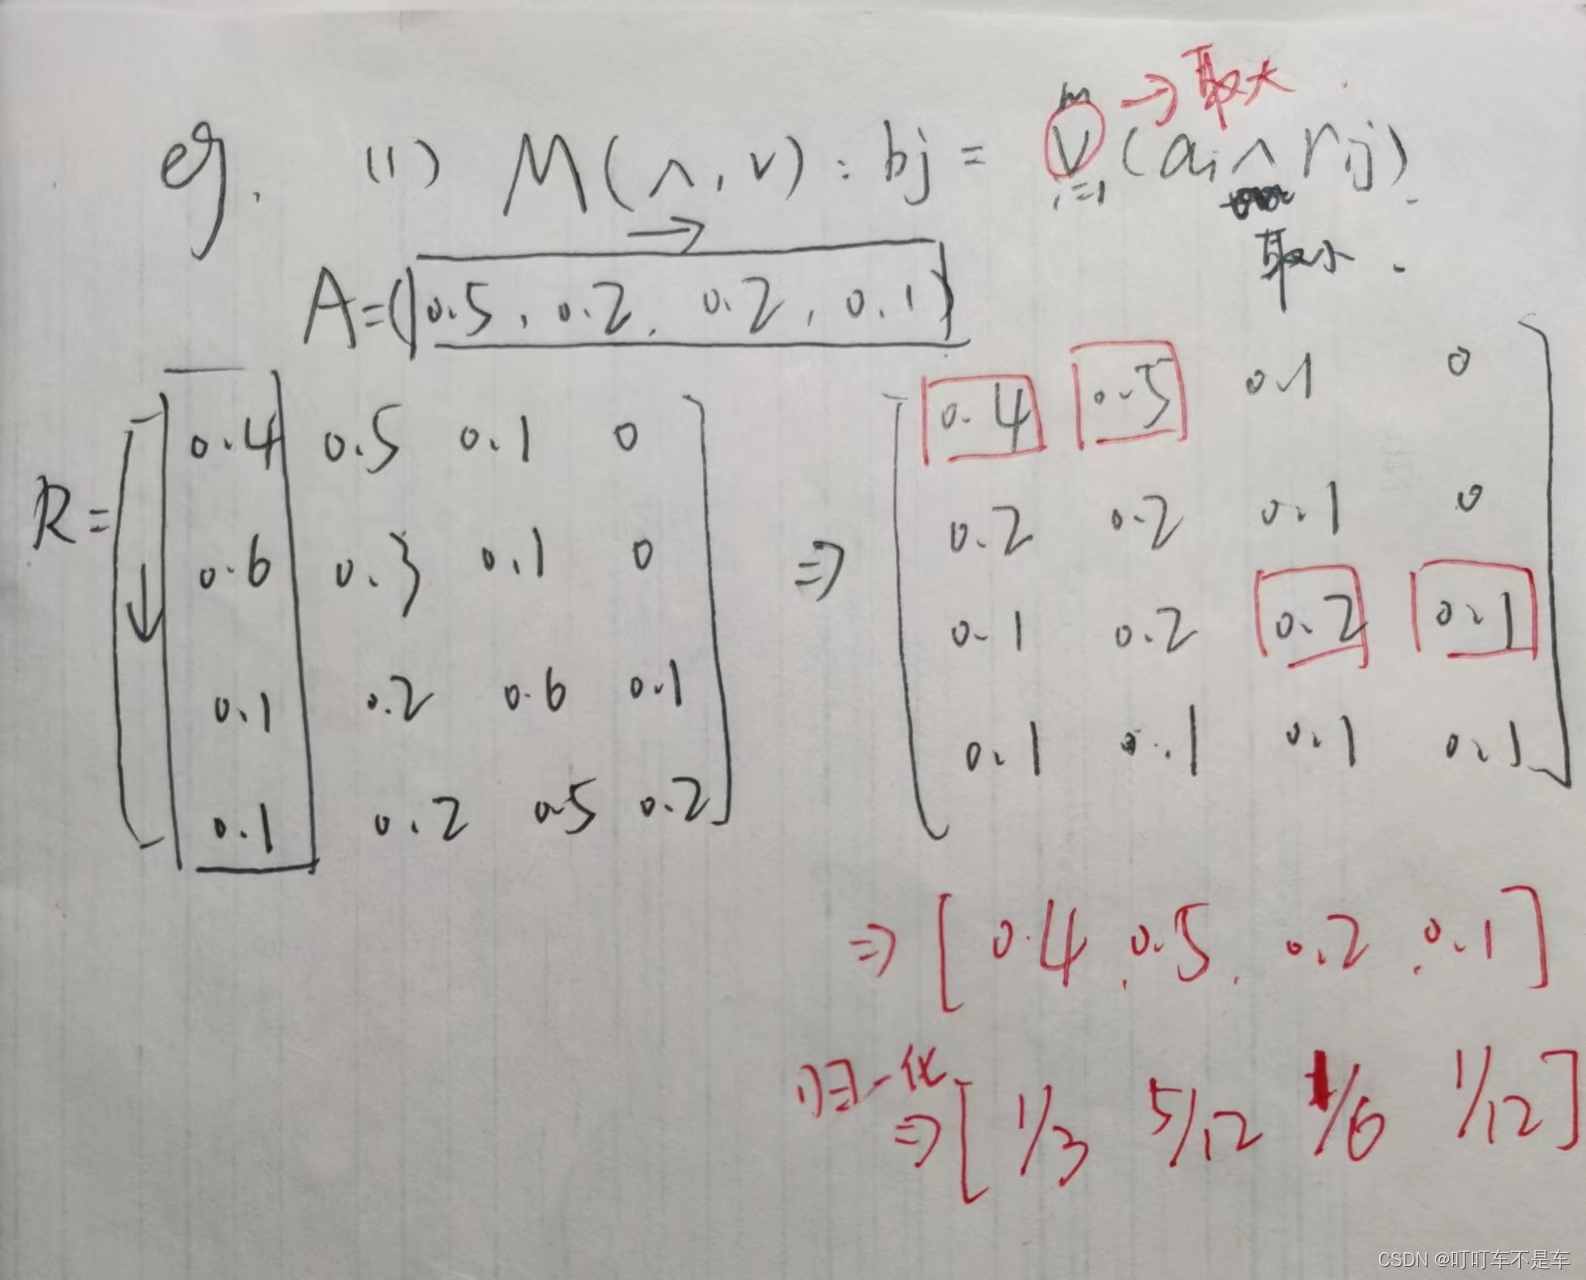 eg. (1) M(∧,∨): bj = m ∨ i=1 (ai ∧ rij). → 取大
取小.
A=(0.5, 0.2, 0.2, 0.1)
R= 0.4 0.5 0.1 0
0.6 0.3 0.1 0
0.1 0.2 0.6 0.1
0.1 0.2 0.5 0.2
⇒ 0.4 0.5 0.1 0
0.2 0.2 0.1 0
0.1 0.2 0.2 0.1
0.1 0.1 0.1 0.1
⇒ [0.4, 0.5, 0.2, 0.1]
归一化
⇒ [1/3 5/12 1/6 1/12]
CSDN @叮叮车不是车